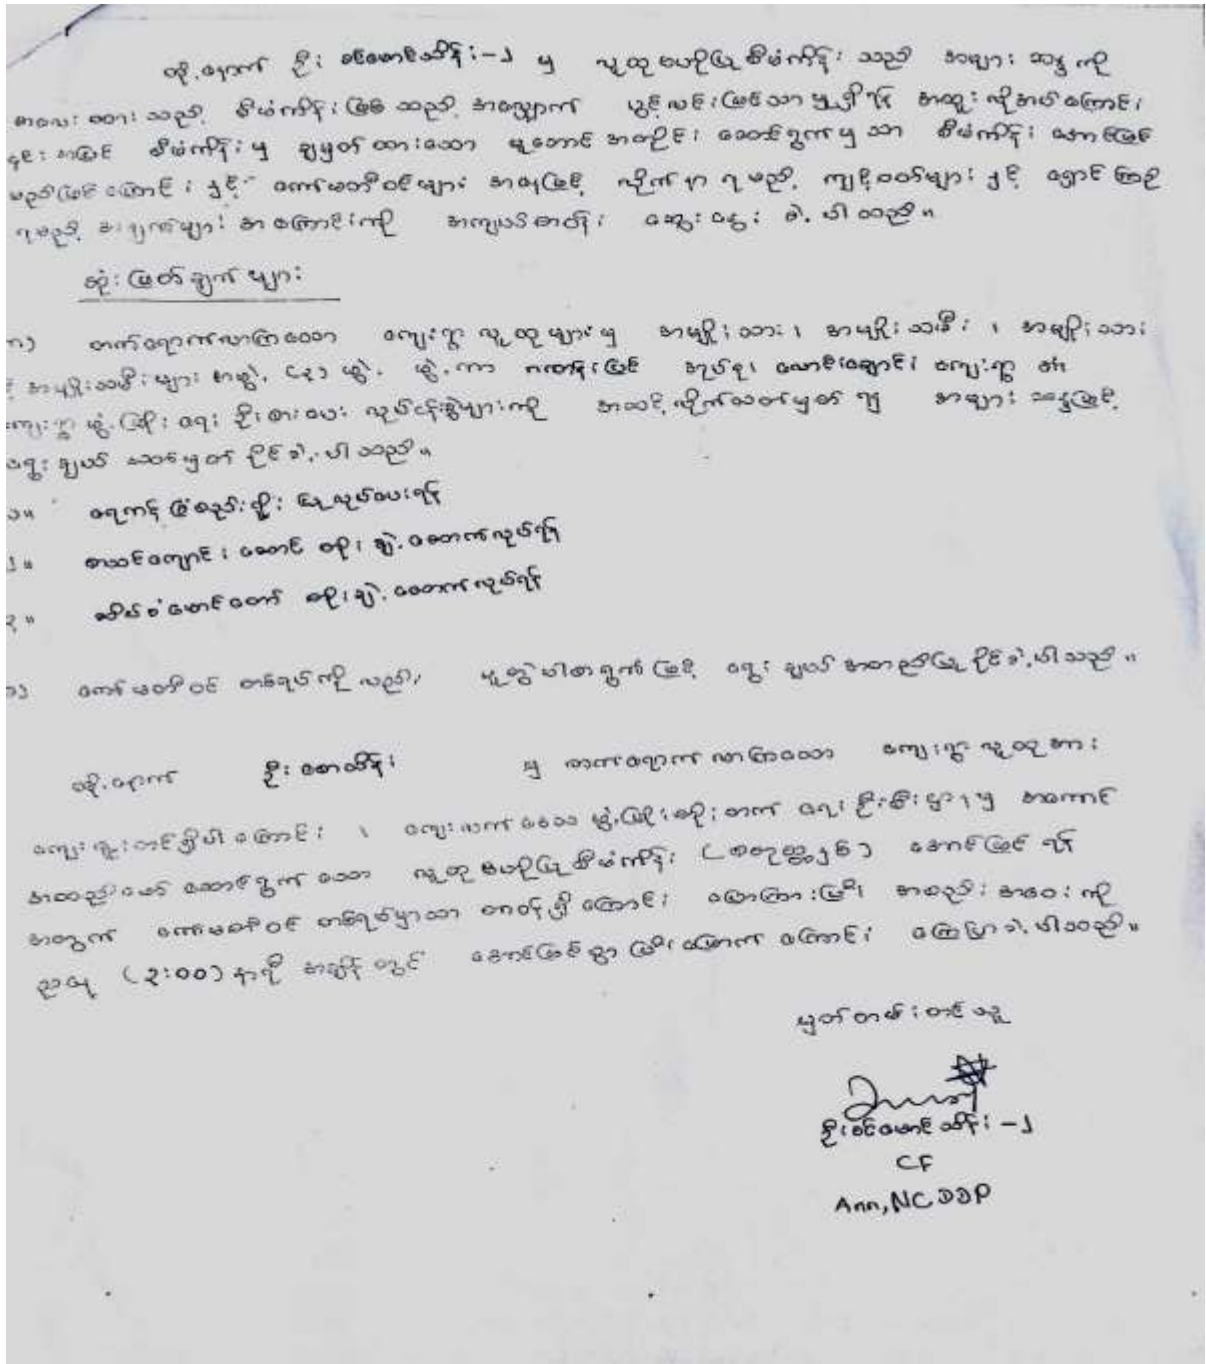 ထို့နောက် ဦးစင်မောင်သိန်း-၂ မှ လူထုဗဟိုပြုစီမံကိန်း သည် အများ ဆန္ဒကို
အလေးထားသည့် စီမံကိန်းဖြစ်သည့် အလျှောက် ပွင့်လင်းမြင်သာမှုရှိရန် အထူးလိုအပ်ကြောင်း၊
၎င်းအပြင် စီမံကိန်းမှ ချမှတ်ထားသော မူဘောင်အတိုင်း ဆောင်ရွက်မှသာ စီမံကိန်း အောင်မြင်
မည်ဖြစ်ကြောင်း နှင့် ကော်မတီဝင်များ အနေဖြင့် လိုက်နာရမည့် ကျင့်ဝတ်များနှင့် ရှောင်ကြဉ်
ရမည့် အချက်များ အကြောင်းကို အကျယ်တဝန်း ဆွေးနွေးခဲ့ပါသည်။
ဆုံးဖြတ်ချက်များ
က) တက်ရောက်လာကြသော ကျေးရွာလူထုများမှ အမျိုးသား၊ အမျိုးသမီး၊ အမျိုးသား
နှင့် အမျိုးသမီးများ အဖွဲ့ (၃) ဖွဲ့ ဖွဲ့ကာ အုပ်စု၊ ကျေးရွာ ၏
ကျေးရွာဖွံ့ဖြိုးရေး ဦးစားပေး လုပ်ငန်းစဉ်များကို အဆင့်လိုက်သတ်မှတ် ၍ အများ ဆန္ဒဖြင့်
ရွေးချယ် သတ်မှတ် နိုင်ခဲ့ပါသည်။
၁။ ရေကန် ခြံစည်းရိုး ပြုလုပ်ပေးရန်
၂။ စာသင်ကျောင်းဆောင် တိုးချဲ့ဆောက်လုပ်ရန်
၃။ တိုးချဲ့ဆောက်လုပ်ရန်
ခ) ကော်မတီဝင် တစ်ရပ်ကိုလည်း ပူးတွဲပါစာရွက်ဖြင့် ရွေးချယ် အတည်ပြုနိုင်ခဲ့ပါသည်။
ထို့နောက် ဦးစောသိန်း မှ တက်ရောက်လာကြသော ကျေးရွာလူထုအား
ကျေးဇူးတင်ရှိပါကြောင်း၊ ကျေးလက်ဒေသဖွံ့ဖြိုးတိုးတက်ရေးဦးစီးဌာနမှ အကောင်
အထည်ဖော် ဆောင်ရွက်သော လူထုဗဟိုပြုစီမံကိန်း (စတုတ္ထနှစ်) အောင်မြင်ရန်
အတွက် ကော်မတီဝင် တစ်ရပ်မှာသာ တာဝန်ရှိကြောင်း ပြောကြားပြီး၊ အစည်းအဝေးကို
ညနေ (၃:၀၀) နာရီ အချိန်တွင် အောင်မြင်စွာ ပြီးမြောက်ကြောင်း ကြေငြာခဲ့ပါသည်။
မှတ်တမ်းတင်သူ
ဦးစင်မောင်သိန်း-၂
CF
Ann, NCDDP